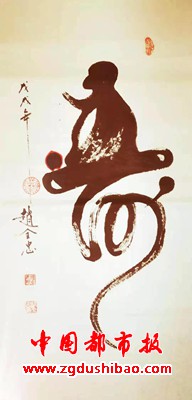 戊戌年
趙全忠
中国都市报
www.zgdushibao.com